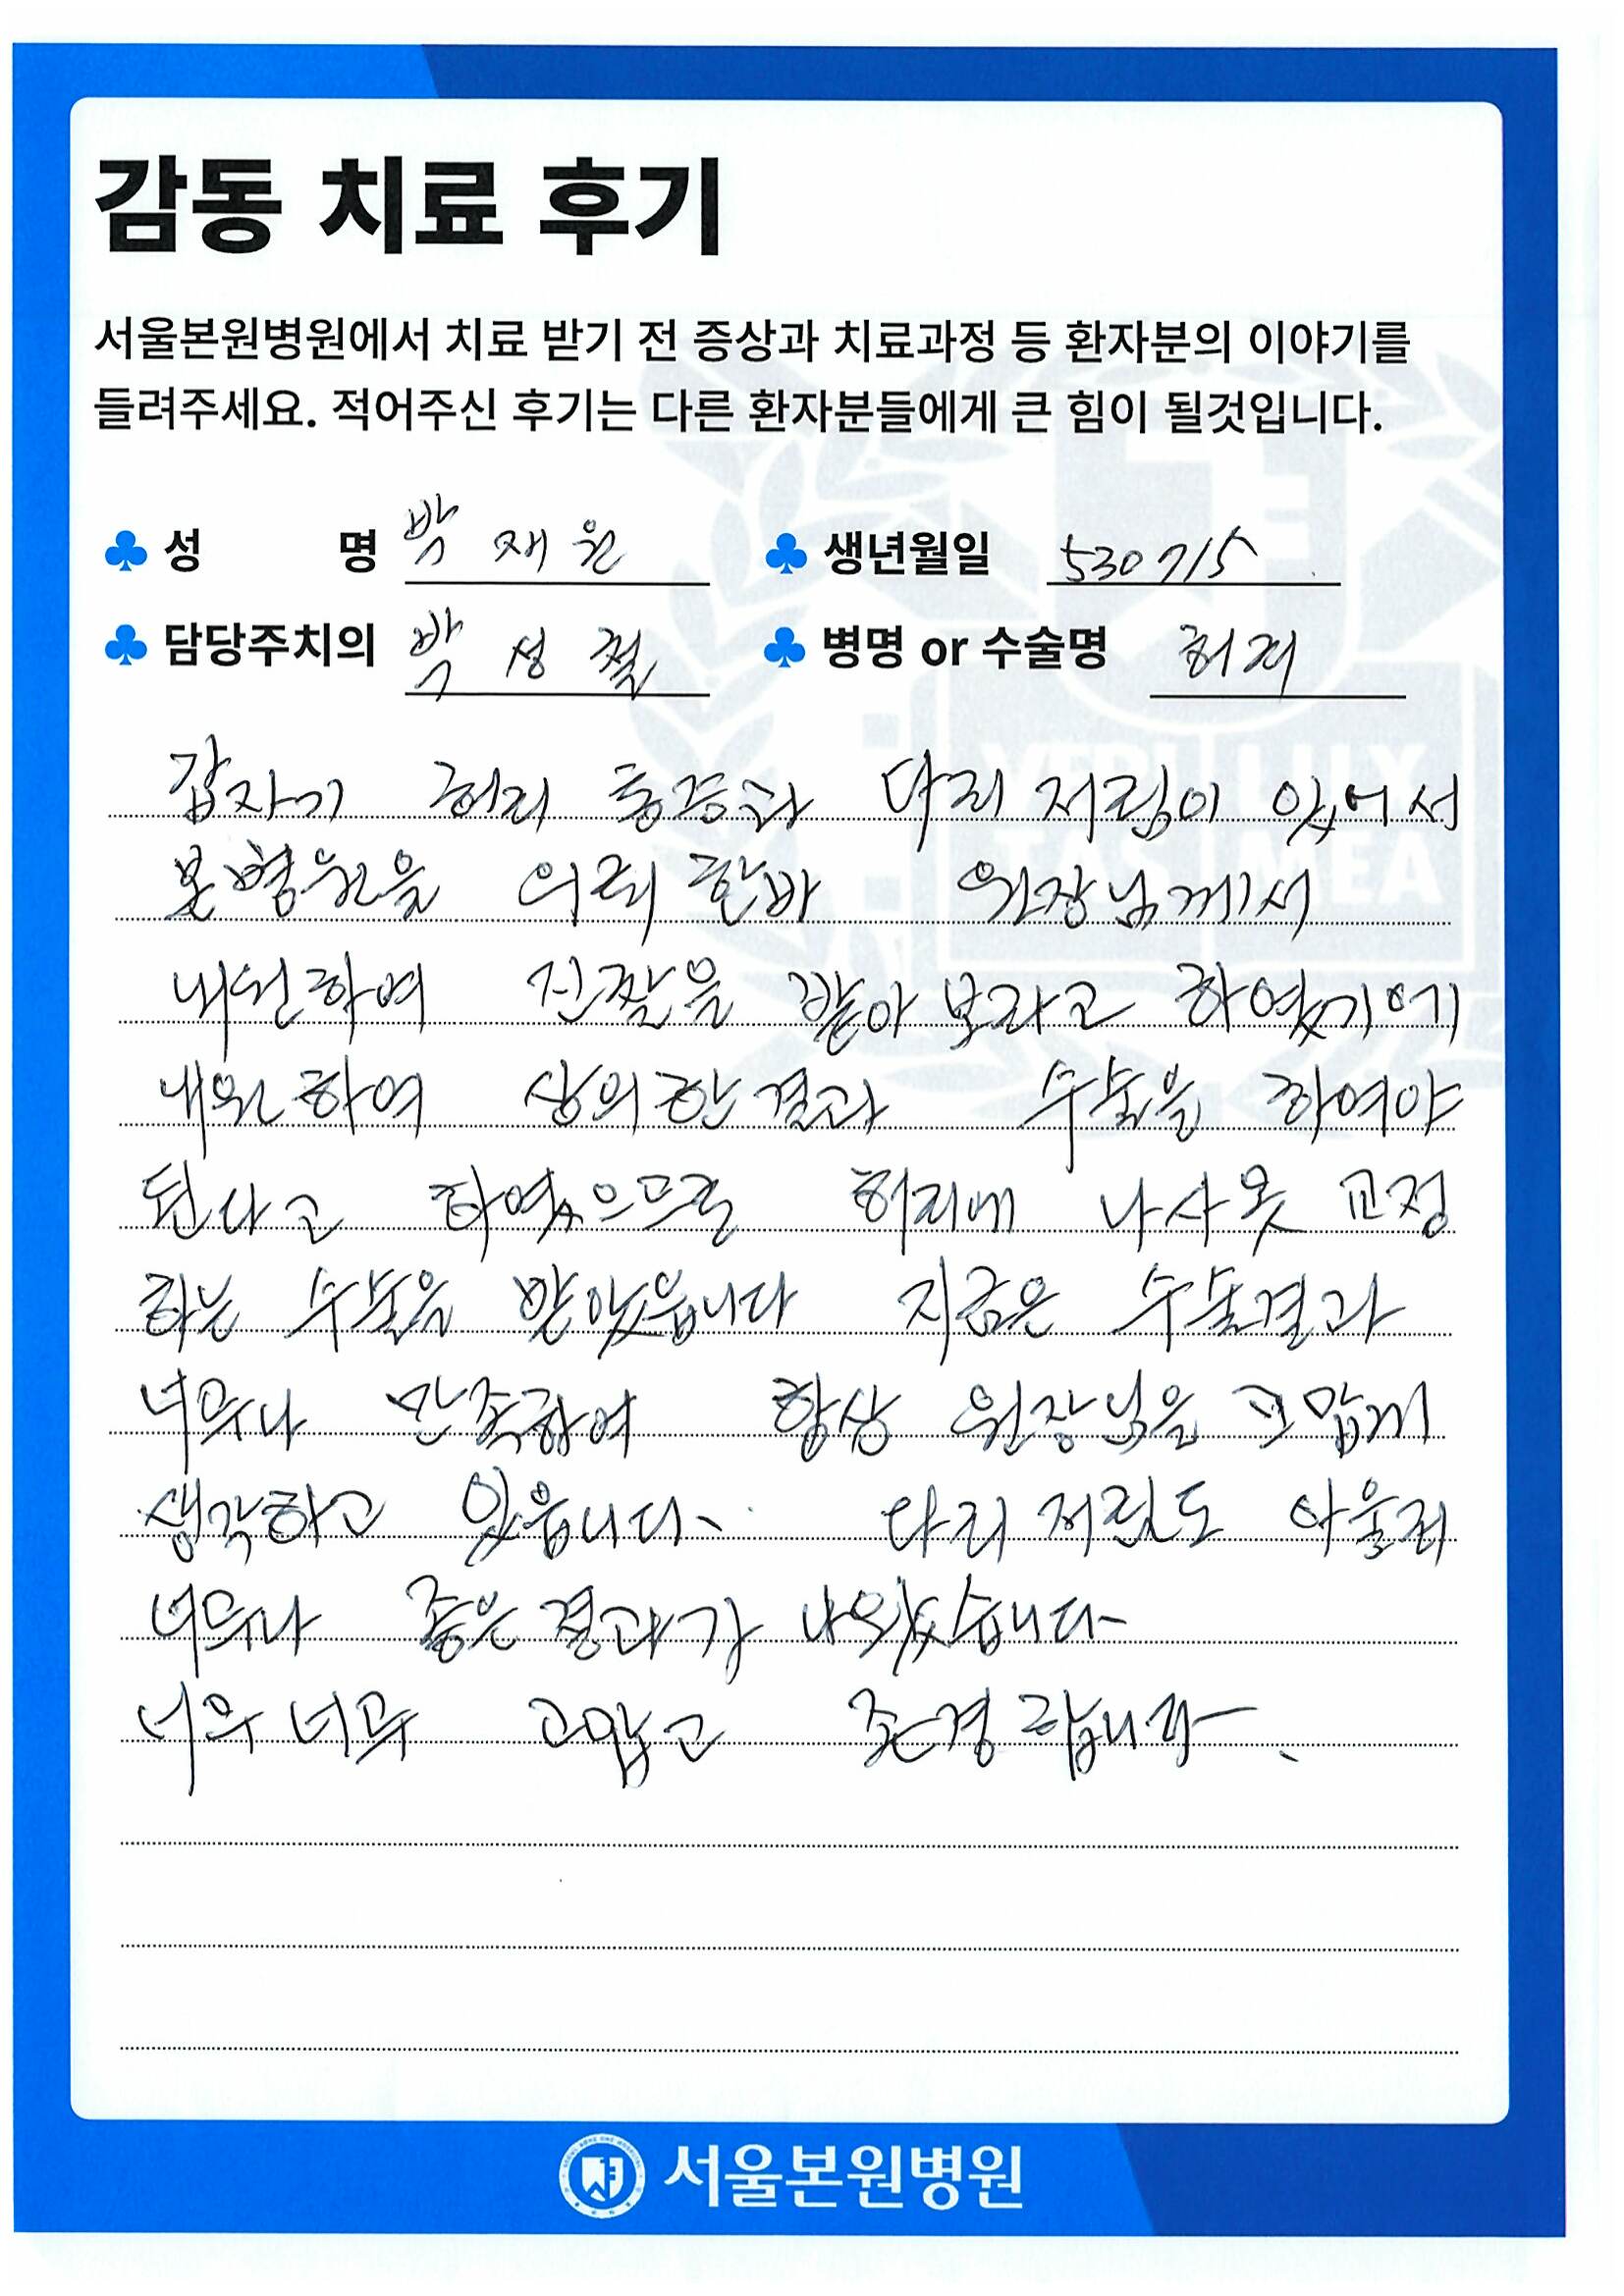 감동 치료 후기
서울본원병원에서 치료 받기 전 증상과 치료과정 등 환자분의 이야기를
들려주세요. 적어주신 후기는 다른 환자분들에게 큰 힘이 될것입니다.
♣ 성 명 박 재 원 ♣ 생년월일 530715
♣ 담당주치의 박 성 철 ♣ 병명 or 수술명 허리
갑자기 허리 통증과 다리 저림이 있어서
본병원을 의뢰 한바 원장님께서
내원하여 진찰을 받아 보라고 하였기에
내원하여 상의한 결과 수술을 하여야
된다고 하였으므로 허리에 나사못 교정
하는 수술을 받았읍니다 지금은 수술결과
너무나 만족하여 항상 원장님을 고맙게
생각하고 있읍니다. 다리 저림도 아울러
너무나 좋은 결과가 나왔습니다
너무 너무 고맙고 존경 합니다.
VERI LUX
TAS MEA
서울본원병원